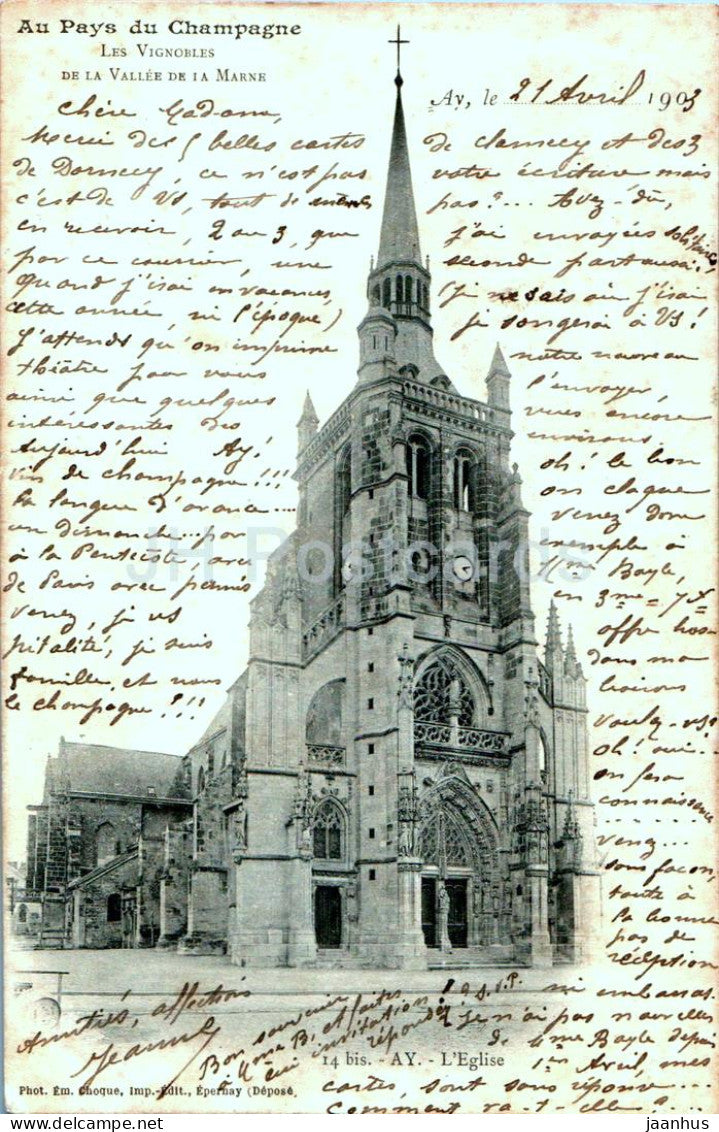 Au Pays du Champagne
Les Vignobles
de la Vallée de la Marne
Ay, le 21 Avril 1903
Chère Madame,
Merci des 5 belles cartes
de Dornecy, ce n'est pas
c'est de Vs, tout de même
en recevoir, 2 ou 3, que
par ce courrier, une
quand j'irai en vacances
cette année, ni l'époque)
J'attends qu'on imprime
théâtre pour vous
ainsi que quelques
intéressantes des
Aujourd'hui Ay!
vin de champagne!!!
la langue d'avance...
un dimanche... par
à la Pentecôte, avec
de Paris avec permis
venez, je vs
pitalité, je suis
famille, et nous
le champagne!!!
de clamecy et des 3
votre écriture mais
pas?... Avez-vu,
j'ai envoyées
seconde part aussi?
(je ne sais où j'irai
je songerai à Vs!
notre nouveau
l'envoyer,
vues encore
environs.
oh! le bon
on claque
venez donc
exemple à
Mme Bayle,
en 3me = 7 x
offre hos
dans ma
boirons
voulez-vs?
oh! oui...
on fera
connaissance
venez...
sans façon,
toute à
la bonne
pas de
réception
ni embarras.
Amitiés, affections
Jeanne
Bon souvenir
à Mme B, et faites
répondez
P.S.
je n'ai pas nouvelles
de Mme Bayle depuis
1er Avril, mes
cartes, sont sans réponse...
Comment va-t-elle?
14 bis. - AY. - L'Eglise
Phot. Ém. Choque, Imp.-Édit., Épernay (Déposé
JH Postcards
jaanhus